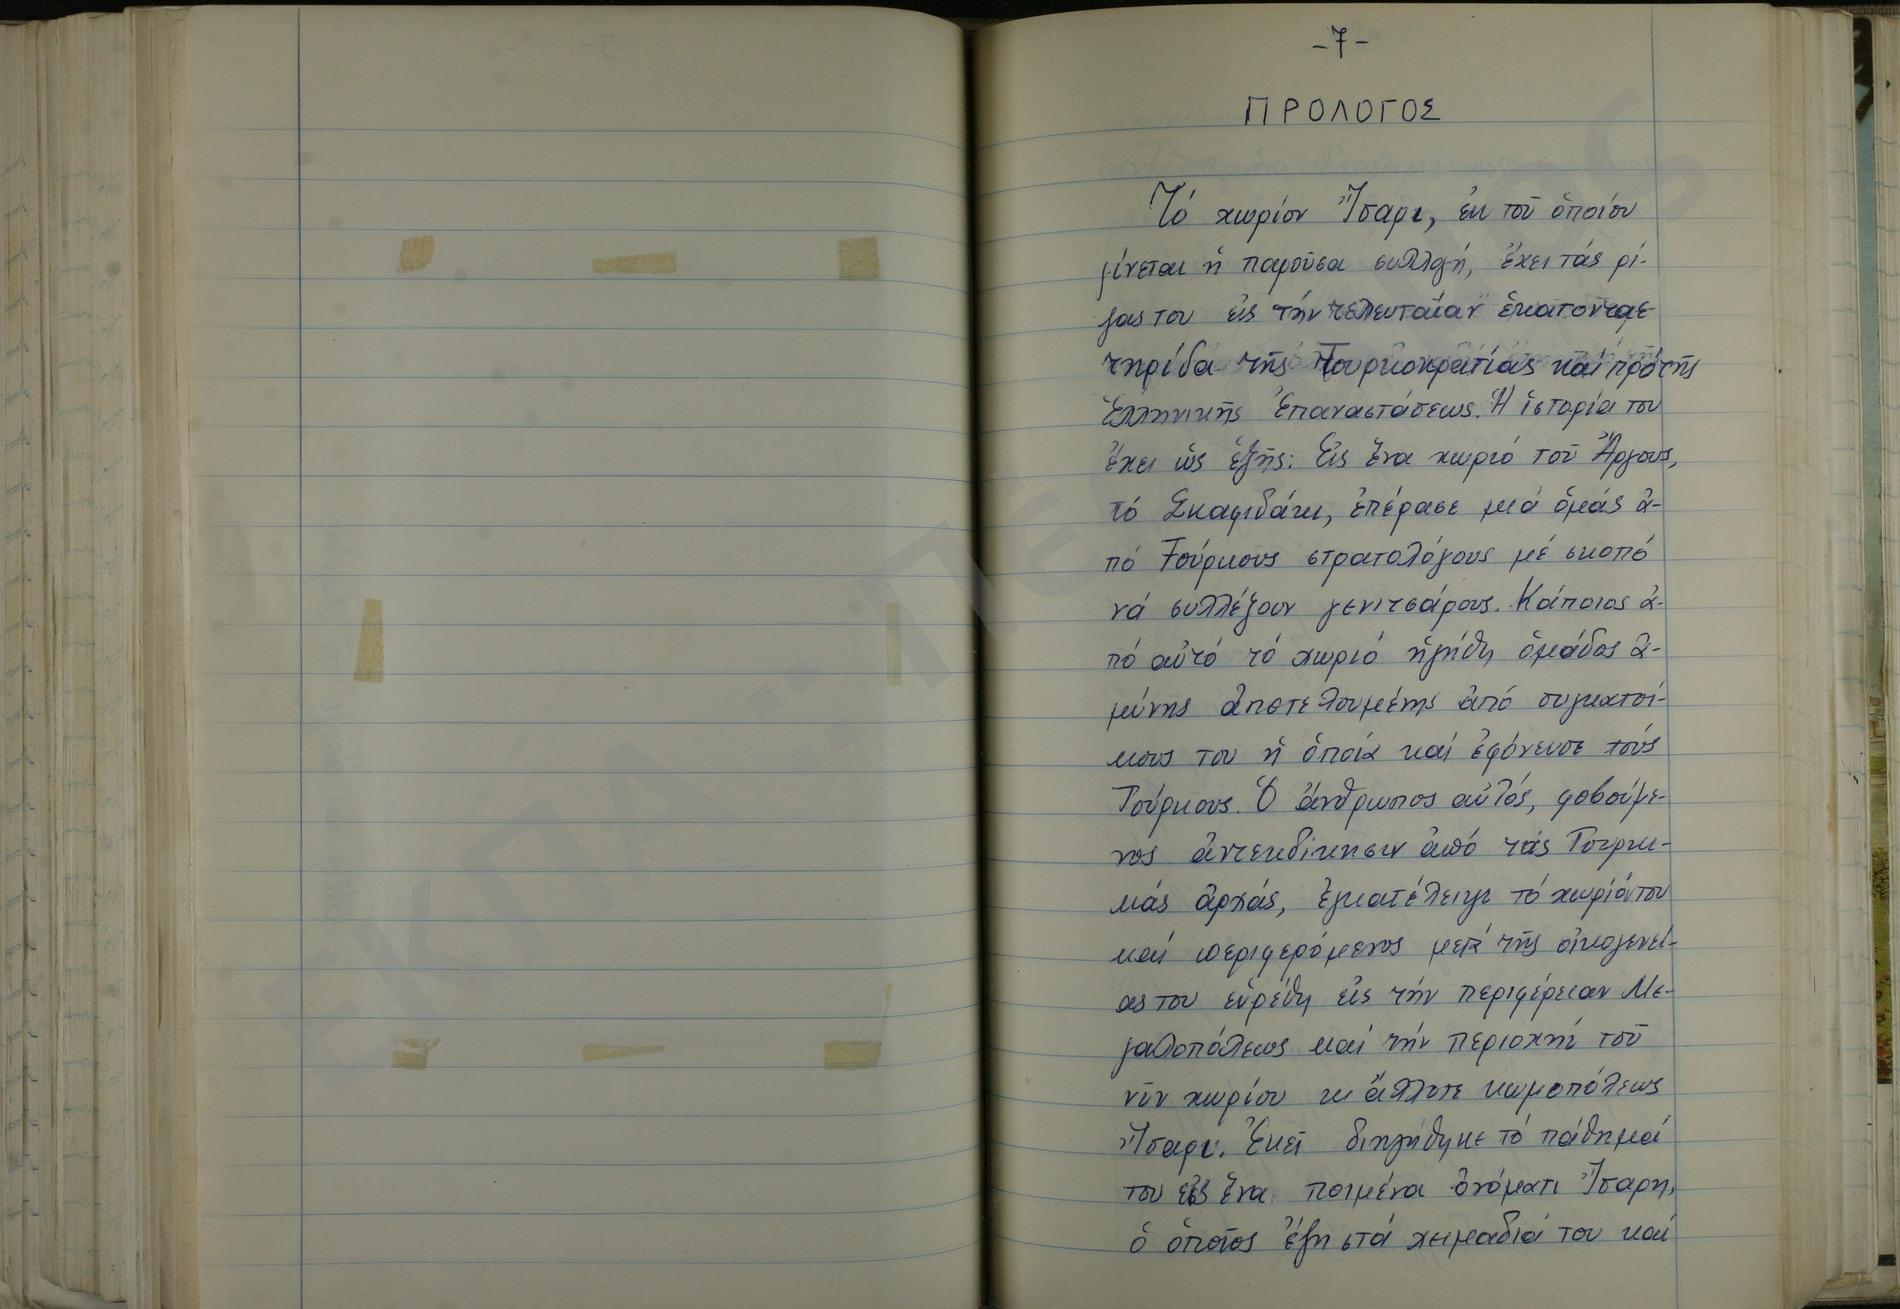 -7-
ΠΡΟΛΟΓΟΣ
Τό χωρίον Ἴσαρι, ἐκ τοῦ ὁποίου
γίνεται ἡ παροῦσα συλλογή, ἔχει τάς ρί-
ζας του εἰς τήν τελευταίαν ἑκατονταε-
τηρίδα τῆς Τουρκοκρατίας καί πρό τῆς
Ἑλληνικῆς Ἐπαναστάσεως. Ἡ ἱστορία του
ἔχει ὡς ἑξῆς: Εἰς ἕνα χωριό τοῦ Ἄργους,
τό Σκαφιδάκι, ἐπέρασε μιά ὁμάς ἀ-
πό Τούρκους στρατολόγους μέ σκοπό
νά συλλέξουν γενιτσάρους. Κάποιος ἀ-
πό αὐτό τό χωριό ἡγήθη ὁμάδος ἀ-
μύνης ἀποτελουμένης ἀπό συγκατοί-
κους του ἡ ὁποία καί ἐφόνευσε τούς
Τούρκους. Ὁ ἄνθρωπος αὐτός, φοβούμε-
νος ἀντεκδίκησιν ἀπό τάς Τουρκι-
κάς ἀρχάς, ἐγκατέλειψε τό χωρίό του
καί περιφερόμενος μετά τῆς οἰκογενεί-
ας του εὑρέθη εἰς τήν περιφέρειαν Με-
γαλοπόλεως καί τήν περιοχήν τοῦ
νῦν χωρίου κι ἄλλοτε κωμοπόλεως
Ἴσαρι. Ἐκεῖ διηγήθηκε τό πάθημά
του εἰς ἕνα ποιμένα ὀνόματι Ἴσαρη,
ὁ ὁποῖος ἔζη στά χειμαδιά του καί
ΕΚΠΑ